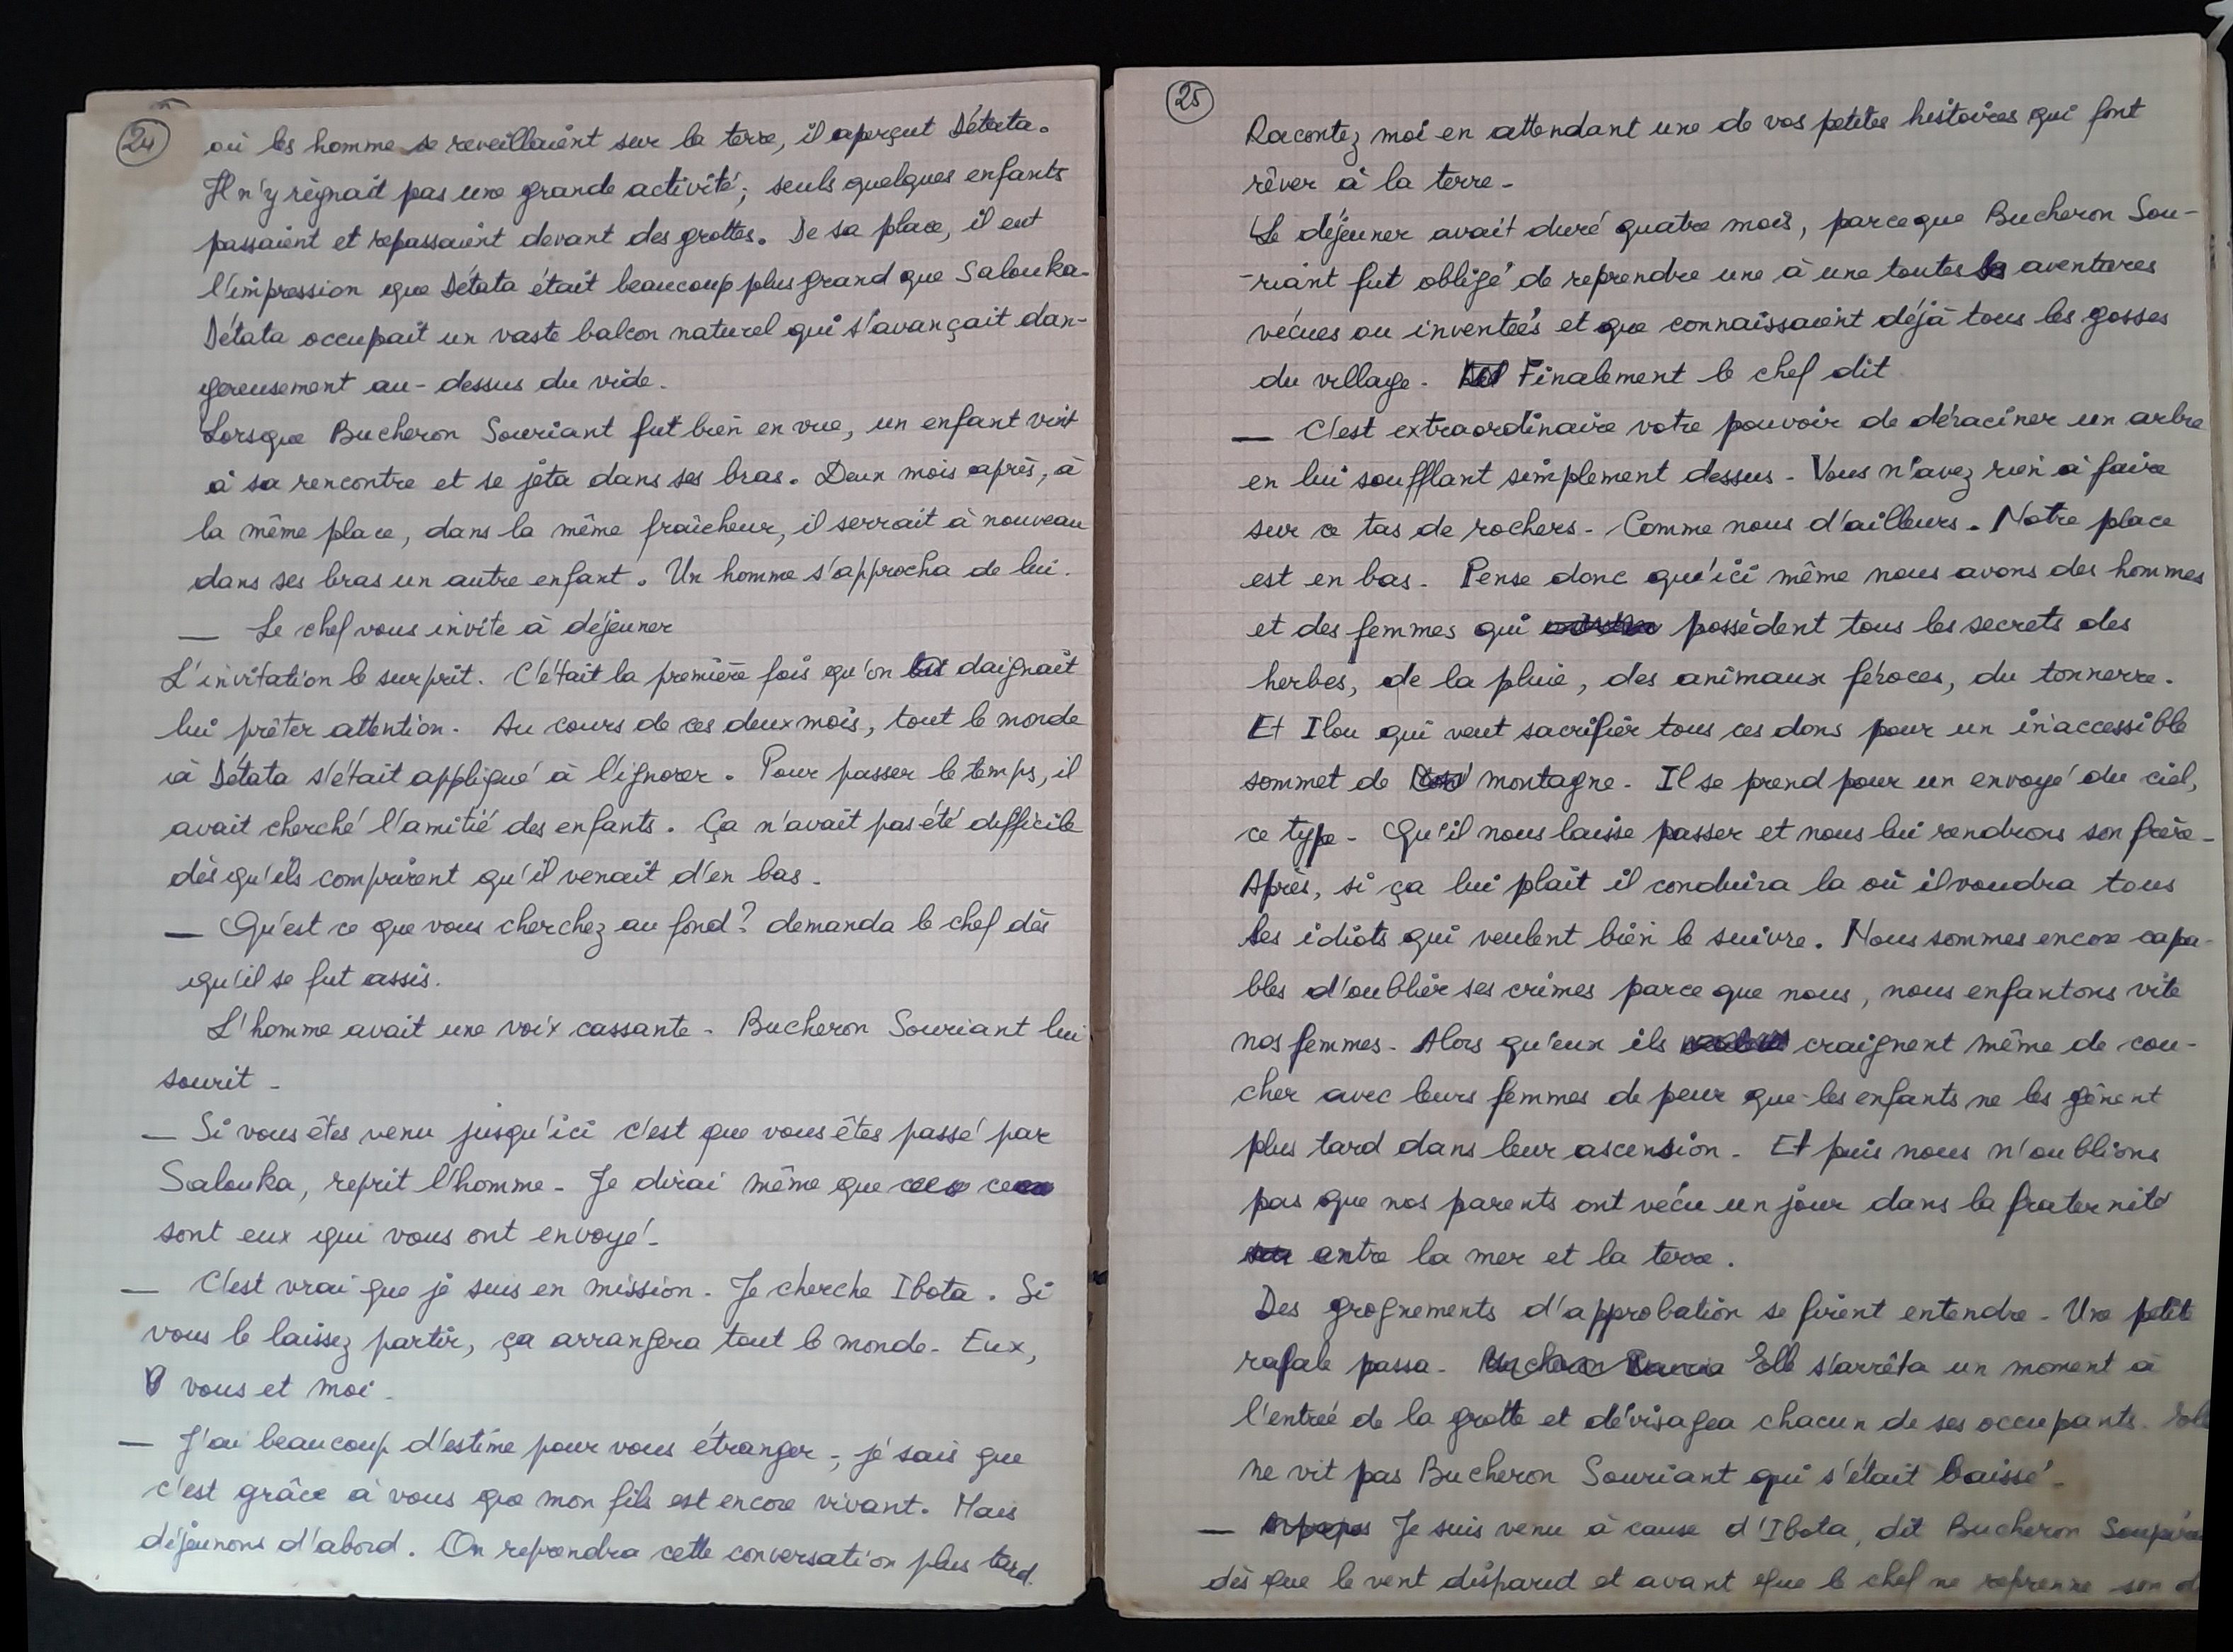 24
où les homme se reveillaient sur la terre, il aperçut Détata.
Il n'y règnait pas une grande activité; seuls quelques enfants
passaient et repassaient devant des grottes. De sa place, il eut
l'impression que Détata était beaucoup plus grand que Salouka.
Détata occupait un vaste balcon naturel qui s'avançait dan-
gereusement au-dessus du vide.
Lorsque Bucheron Souriant fut bien en vue, un enfant vint
à sa rencontre et se jéta dans ses bras. Deux mois après, à
la même place, dans la même fraîcheur, il serrait à nouveau
dans ses bras un autre enfant. Un homme s'approcha de lui.
— Le chef vous invite à déjeuner
L'invitation le surprit. C'était la première fois qu'on daignait
lui prêter attention. Au cours de ces deux mois, tout le monde
à Détata s'était appliqué à l'ignorer. Pour passer le temps, il
avait cherché l'amitié des enfants. Ça n'avait pas été difficile
dès qu'ils comprirent qu'il venait d'en bas.
— Qu'est ce que vous cherchez au fond? demanda le chef dès
qu'il se fut assis.
L'homme avait une voix cassante. Bucheron Souriant lui
sourit.
— Si vous êtes venu jusqu'ici c'est que vous êtes passé par
Salouka, reprit l'homme. Je dirai même que ce
sont eux qui vous ont envoyé.
— C'est vrai que je suis en mission. Je cherche Ibota. Si
vous le laissez partir, ça arrangera tout le monde. Eux,
vous et moi.
— J'ai beaucoup d'estime pour vous étranger; je sais que
c'est grâce à vous que mon fils est encore vivant. Mais
déjeunons d'abord. On reprendra cette conversation plus tard.
25
Racontez moi en attendant une de vos petites histoires qui font
rêver à la terre.
Le déjeuner avait duré quatre mois, parceque Bucheron Sou-
-riant fut obligé de reprendre une à une toutes les aventures
vécues ou inventées et que connaissaient déjà tous les gosses
du village. Finalement le chef dit
— C'est extraordinaire votre pouvoir de déraciner un arbre
en lui soufflant simplement dessus. Vous n'avez rien à faire
sur ce tas de rochers. Comme nous d'ailleurs. Notre place
est en bas. Pense donc qu'ici même nous avons des hommes
et des femmes qui possèdent tous les secrets des
herbes, de la pluie, des animaux féroces, du tonnerre.
Et Ilou qui veut sacrifier tous ces dons pour un inaccessible
sommet de montagne. Il se prend pour un envoyé du ciel,
ce type. Qu'il nous laisse passer et nous lui rendrons son frère.
Après, si ça lui plaît il conduira la où il voudra tous
les idiots qui veulent bien le suivre. Nous sommes encore capa-
bles d'oublier ses crimes parce que nous, nous enfantons vite
nos femmes. Alors qu'eux ils craignent même de cou-
cher avec leurs femmes de peur que les enfants ne les gênent
plus tard dans leur ascension. Et puis nous n'oublions
pas que nos parents ont vécu un jour dans la fraternité
entre la mer et la terre.
Des grognements d'approbation se firent entendre. Une petite
rafale passa. Elle s'arrêta un moment à
l'entrée de la grotte et dévisagea chacun de ses occupants. Elle
ne vit pas Bucheron Souriant qui s'était baissé.
— Je suis venu à cause d'Ibota, dit Bucheron
dès que le vent disparut et avant que le chef ne reprenne son